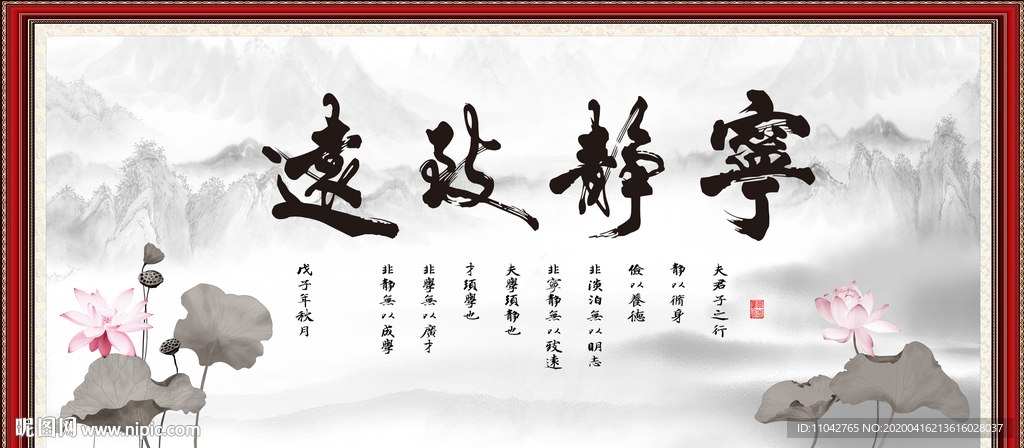 寧靜致遠
夫君子之行
靜以脩身
儉以養德
非淡泊無以明志
非寧靜無以致遠
夫學須靜也
才須學也
非學無以廣才
非靜無以成學
戊子年秋月
昵图网 www.nipic.com
ID:11042765 NO:20200416213616028037